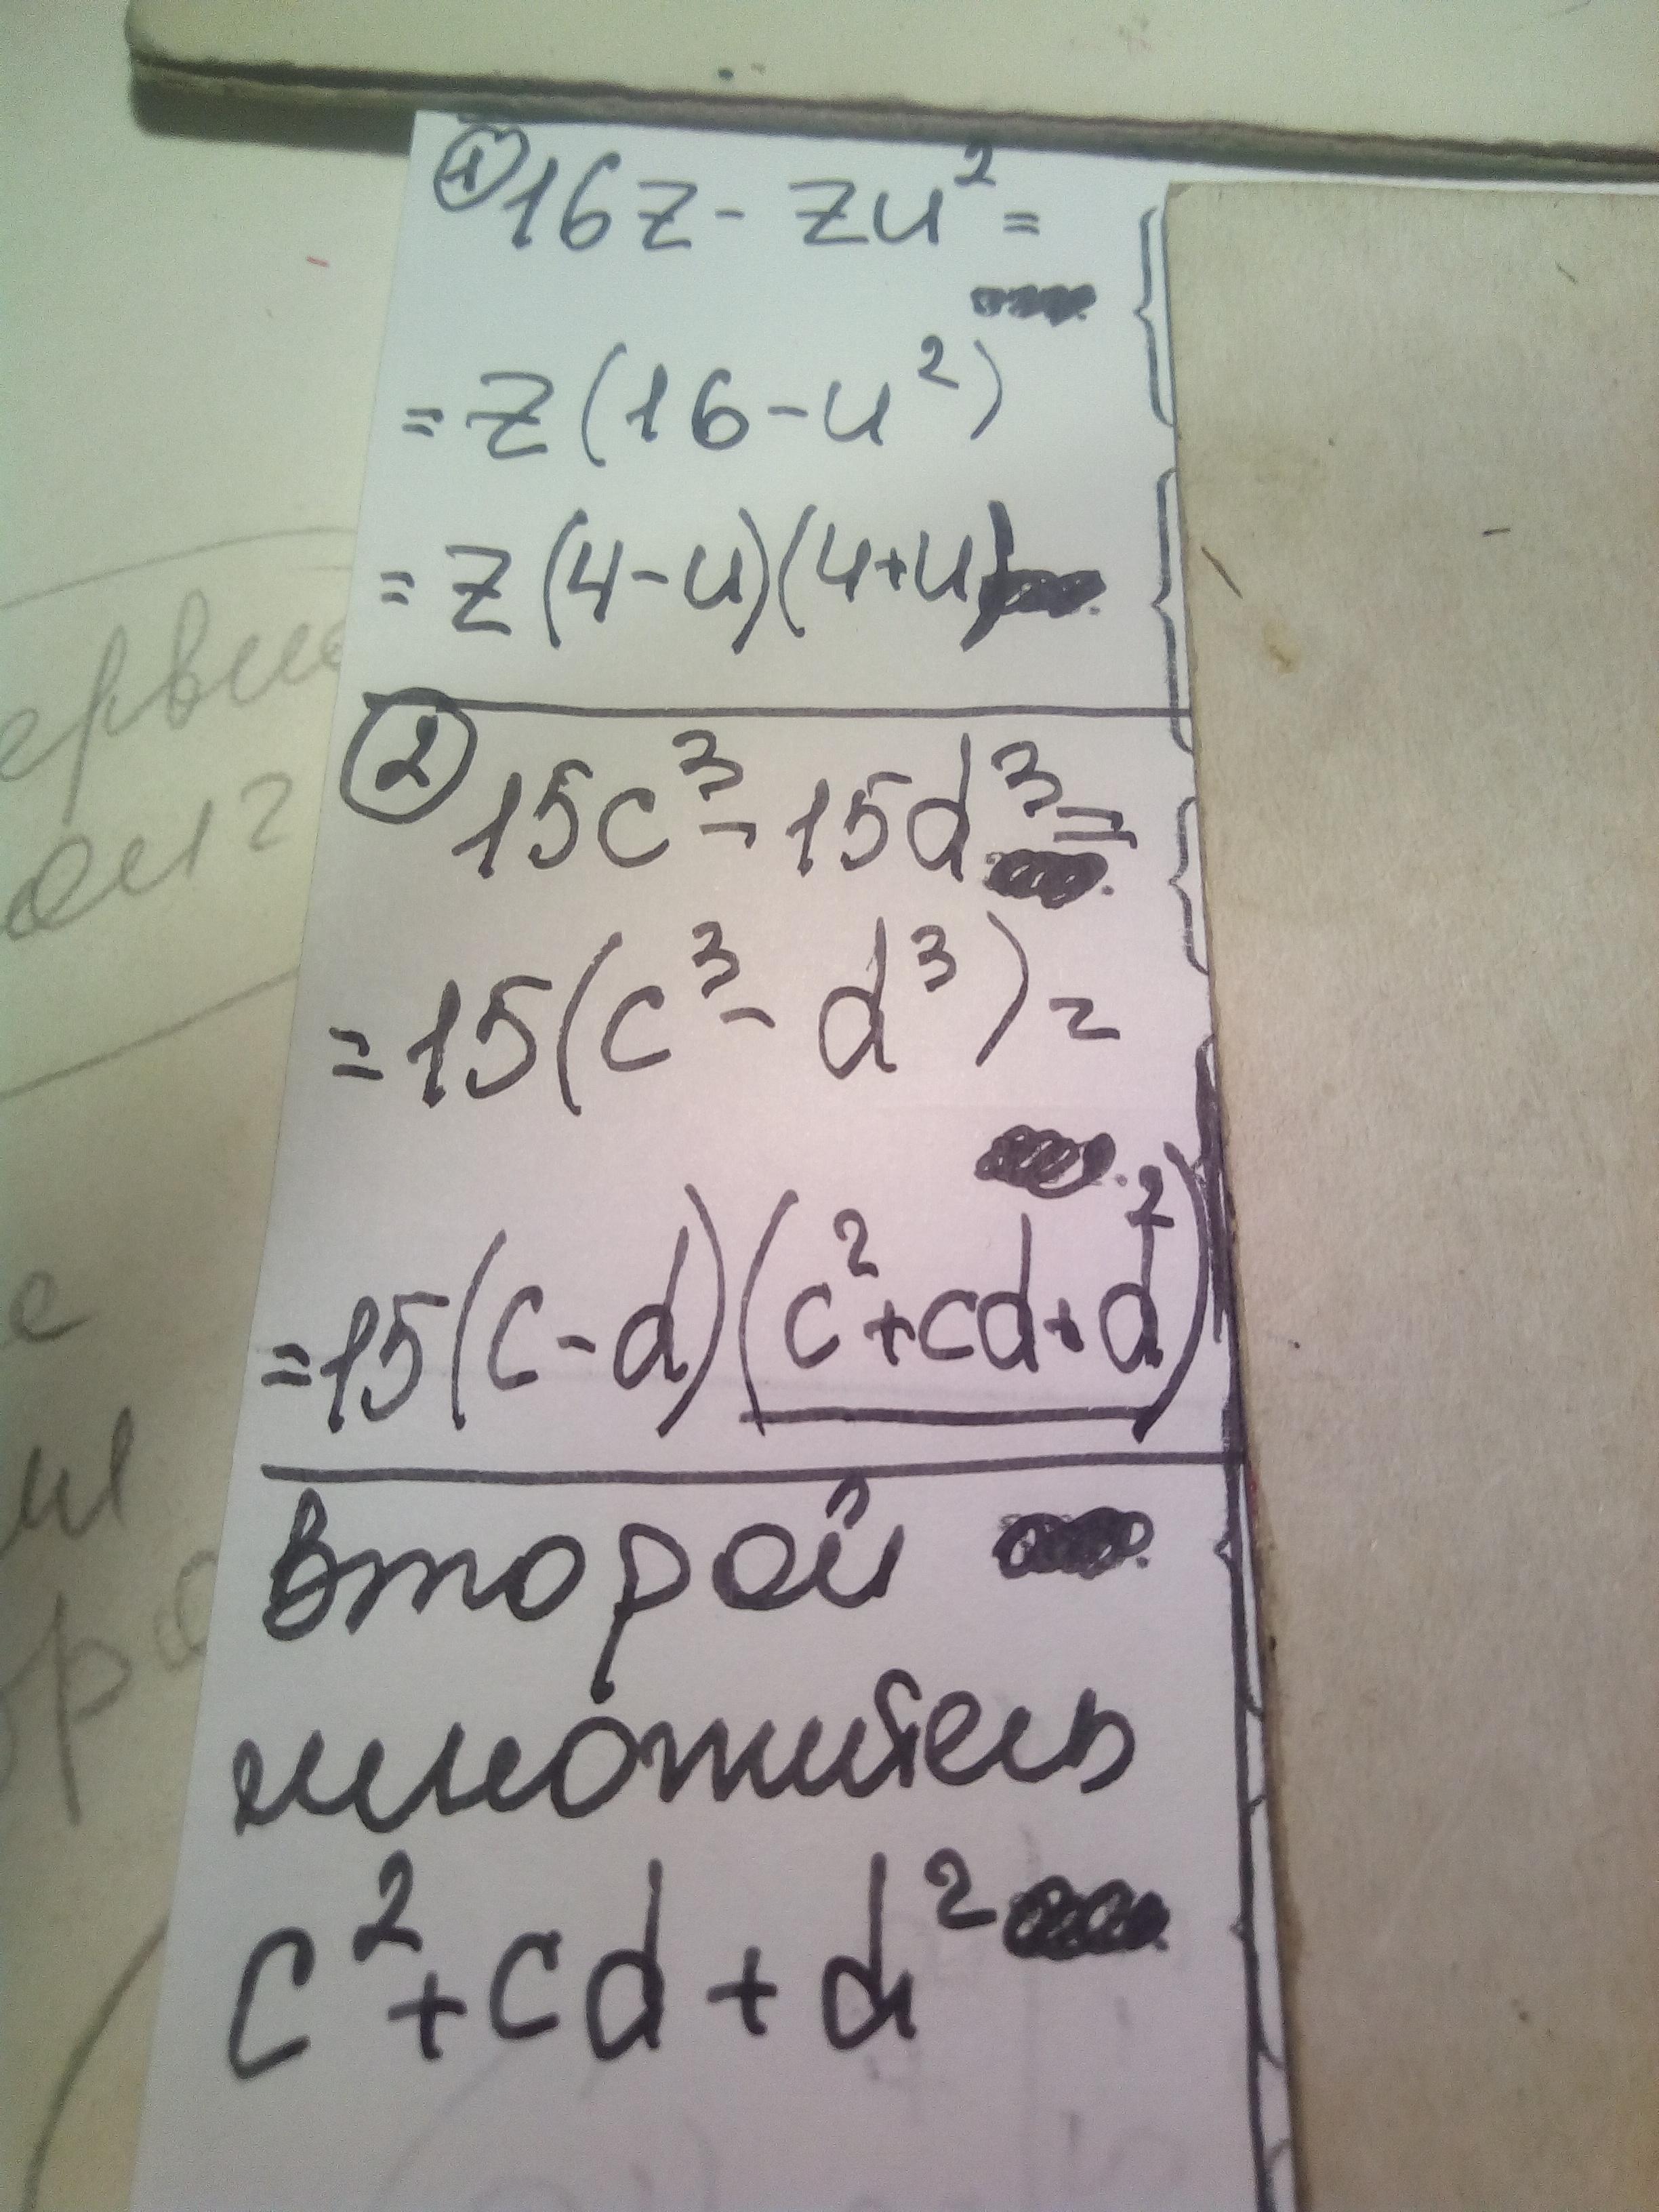 ① 16z - zu² =
= z(16-u²)
= z(4-u)(4+u)
② 15c³ - 15d³ =
= 15(c³ - d³) =
= 15(c-d)(c²+cd+d²)
второй
множитель
c² + cd + d²